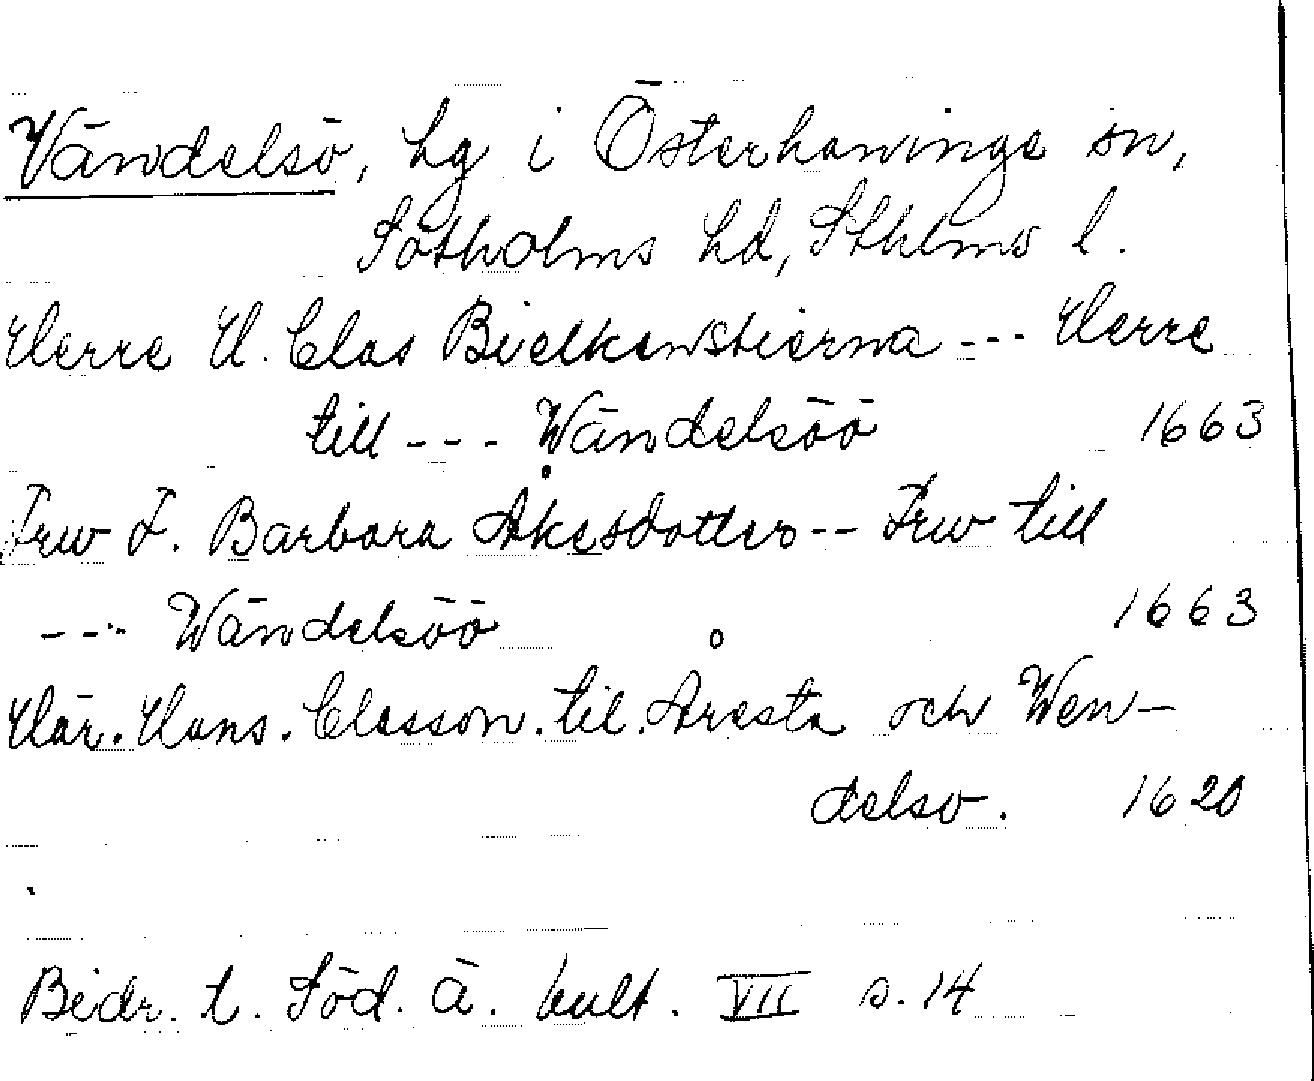 Vändelsö, hg i Österhaninge sn,
Sotholms hd, Sthlms l.
Herre H. Clas Bielkenstierna --- Herre
till --- Wändelsöö 1663
Frw F. Barbara Åkesdotter -- Frw till
--- Wändelsöö 1663
Här. Hans. Classon. til. Årsta och Wen-
delsö. 1620
Bidr. t. Söd. ä. kult. VII s. 14